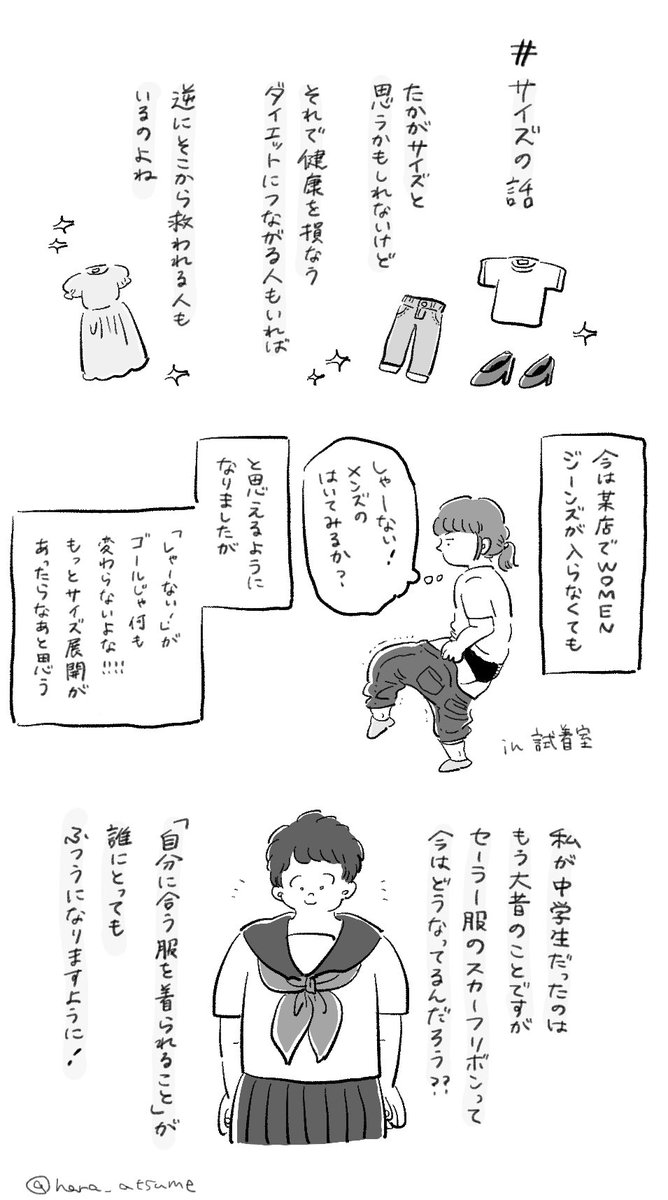 #サイズの話
たかがサイズと
思うかもしれないけど
それで健康を損なう
ダイエットにつながる人もいれば
逆にそこから救われる人も
いるのよね
今は某店でWOMEN
ジーンズが入らなくても
しゃーない!
メンズの
はいてみるか?
と思えるように
なりましたが
「しゃーない!」が
ゴールじゃ何も
変わらないよな!!!!
もっとサイズ展開が
あったらなあと思う
in 試着室
私が中学生だったのは
もう大昔のことですが
セーラー服のスカーフリボンって
今はどうなってるんだろう??
「自分に合う服を着られること」が
誰にとっても
ふつうになりますように!
@hara_atsume